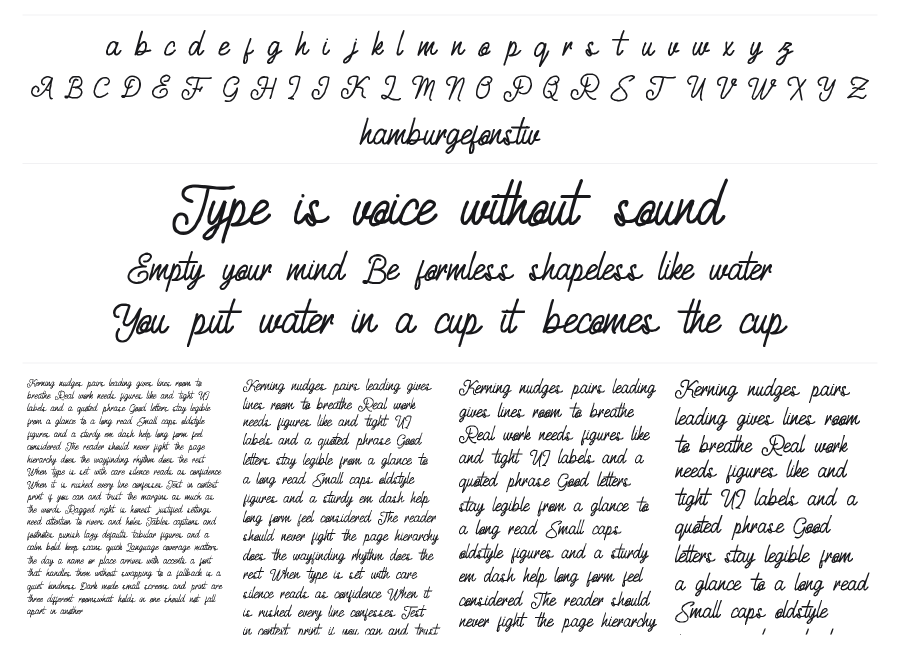 a b c d e f g h i j k l m n o p q r s t u v w x y z
A B C D E F G H I J K L M N O P Q R S T U V W X Y Z
hamburgefonstiv
Type is voice without sound
Empty your mind Be formless shapeless like water
You put water in a cup it becomes the cup
Kerning nudges pairs leading gives lines room to
breathe Real work needs figures like and tight UI
labels and a quoted phrase Good letters stay legible
from a glance to a long read Small caps oldstyle
figures and a sturdy em dash help long form feel
considered The reader should never fight the page
hierarchy does the wayfinding rhythm does the rest
When type is set with care silence reads as confidence
When it is rushed every line confesses Test in context
print if you can and trust the margins as much as
the words Ragged right is honest justified settings
need attention to rivers and holes Tables captions and
footnotes punish lazy defaults tabular figures and a
calm bold keep scans quick Language coverage matters
the day a name or place arrives with accents a font
that handles them without swapping to a fallback is a
quiet kindness Dark mode small screens and print are
three different roomswhat holds in one should not fall
apart in another
Kerning nudges pairs leading gives
lines room to breathe Real work
needs figures like and tight UI
labels and a quoted phrase Good
letters stay legible from a glance to
a long read Small caps oldstyle
figures and a sturdy em dash help
long form feel considered The reader
should never fight the page hierarchy
does the wayfinding rhythm does the
rest When type is set with care
silence reads as confidence When it
is rushed every line confesses Test
in context print if you can and trust
Kerning nudges pairs leading
gives lines room to breathe
Real work needs figures like
and tight UI labels and a
quoted phrase Good letters
stay legible from a glance to
a long read Small caps
oldstyle figures and a sturdy
em dash help long form feel
considered The reader should
never fight the page hierarchy
Kerning nudges pairs
leading gives lines room
to breathe Real work
needs figures like and
tight UI labels and a
quoted phrase Good
letters stay legible from
a glance to a long read
Small caps oldstyle